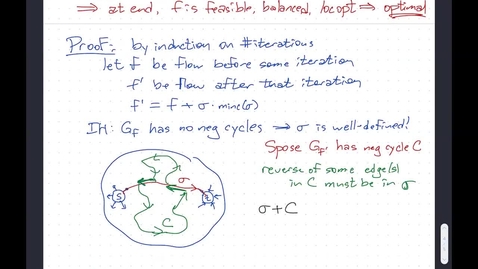 ⇒ at end, f is feasible, balanced, loc opt ⇒ optimal
Proof: by induction on #iterations
let f be flow before some iteration
f' be flow after that iteration
f' = f + σ · minc(σ)
IH: G_f has no neg cycles ⇒ σ is well-defined!
Spose G_f' has neg cycle C
reverse of some edge(s)
in C must be in σ
σ
s
C
σ + C